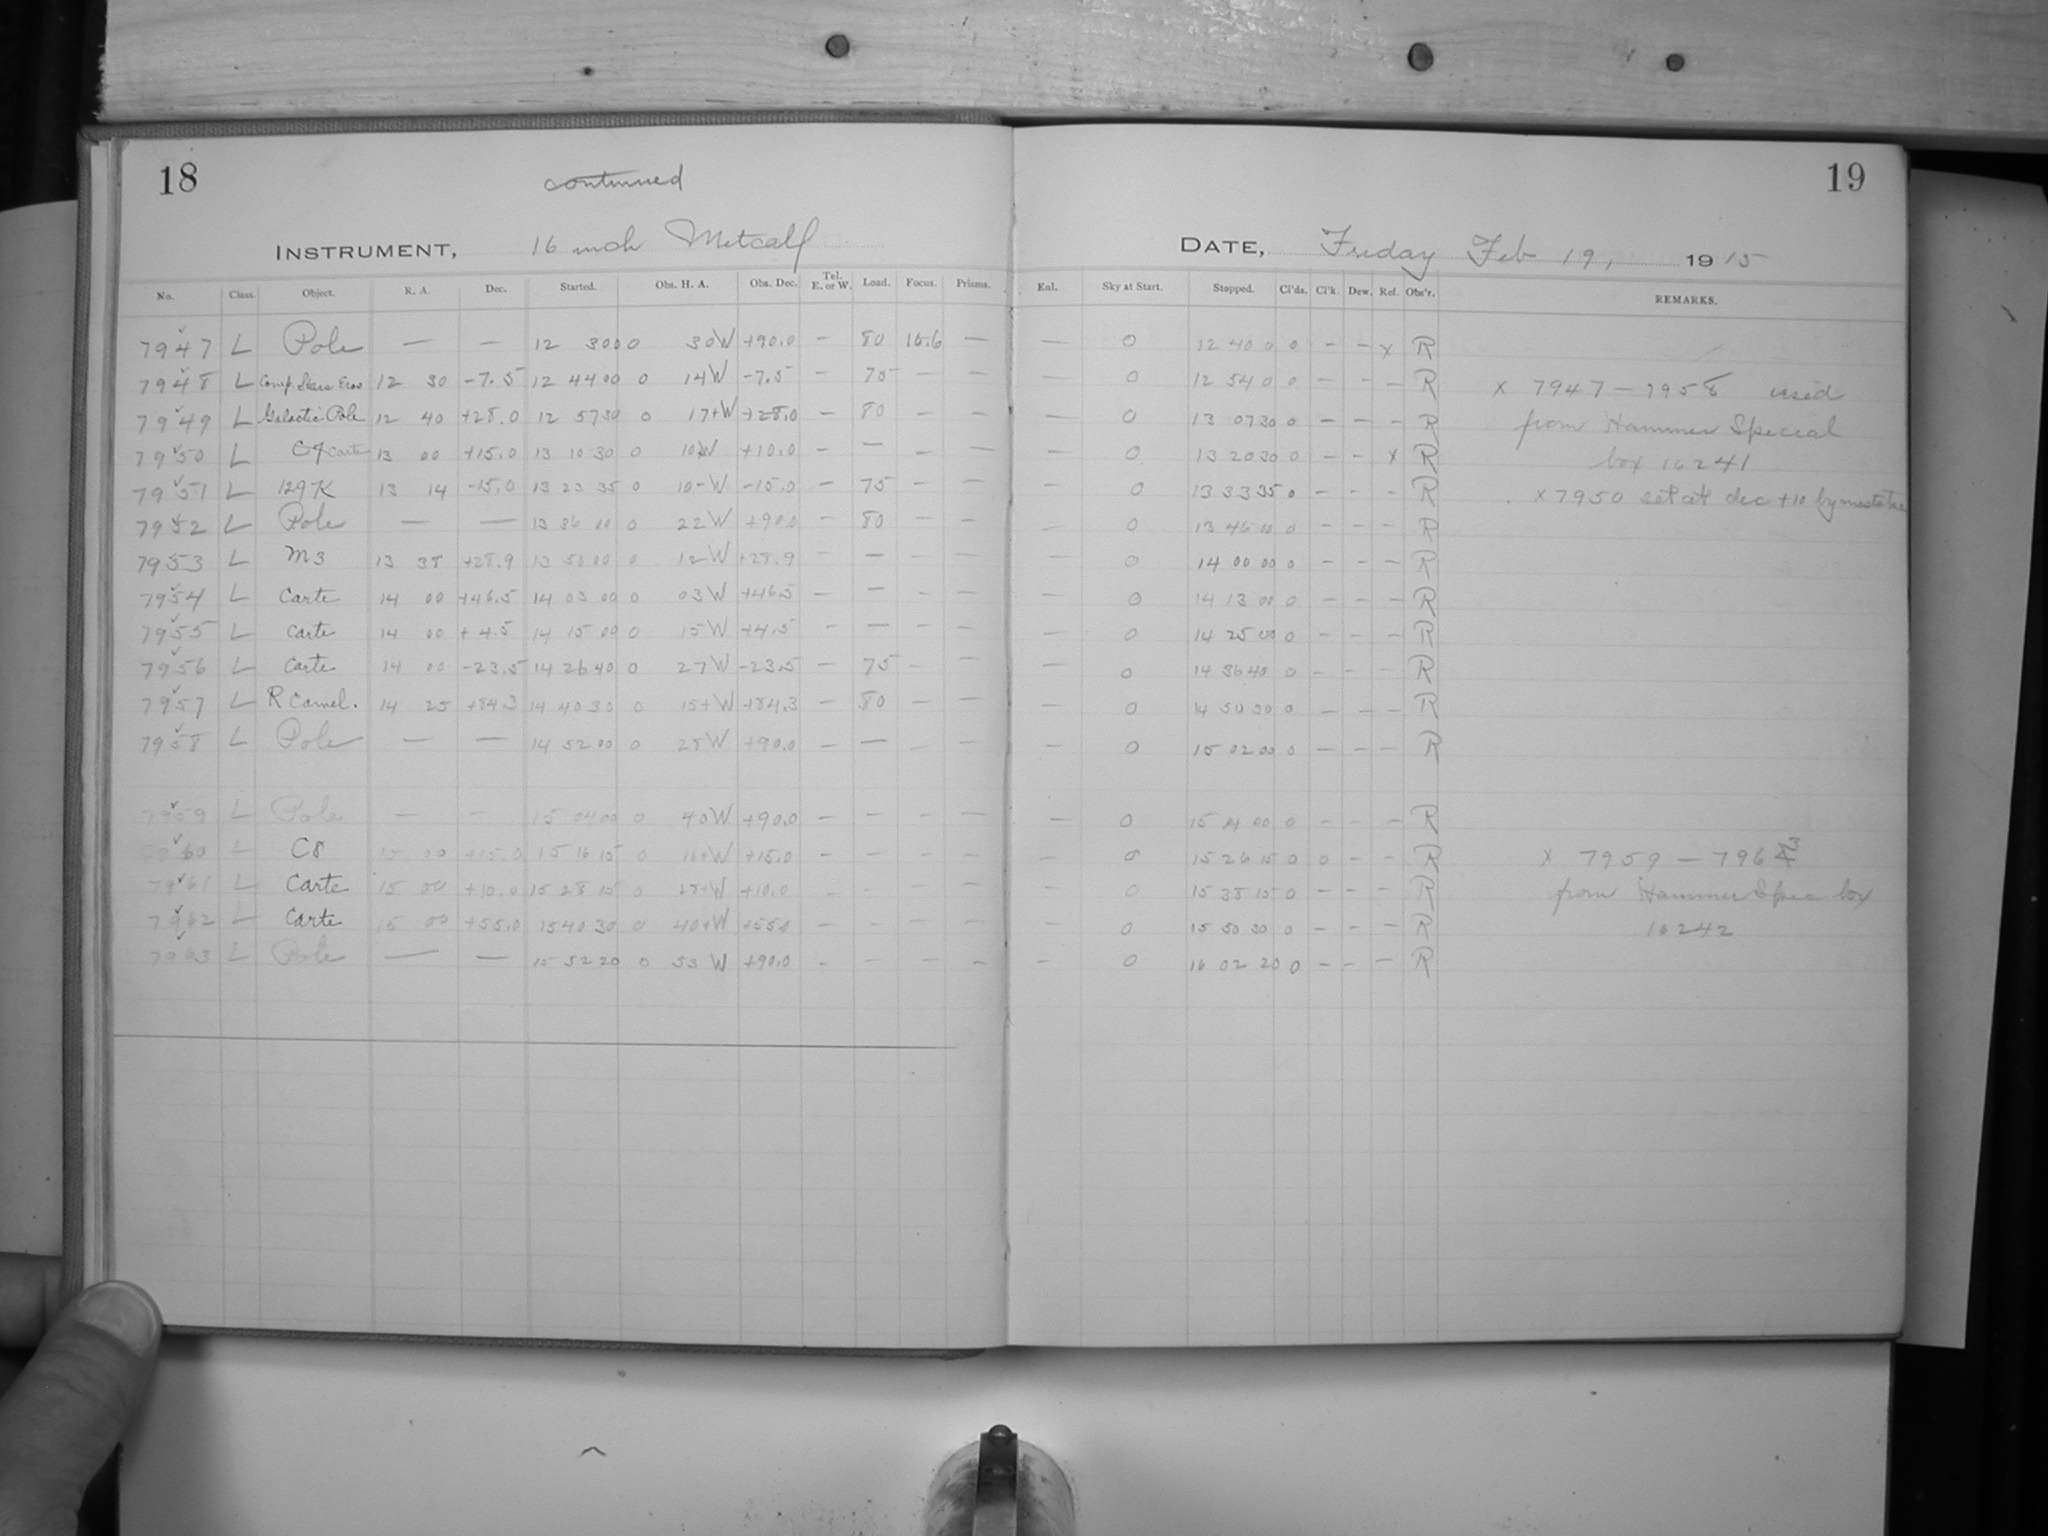 18
continued
19
INSTRUMENT, 16 inch Metcalf
DATE, Friday Feb 19, 1915
No. Class. Object. R. A. Dec. Started. Obs. H. A. Obs. Dec. Tel. E. or W. Load. Focus. Prisms. Eal. Sky at Start. Stopped. Cl'ds. Cl'k. Dew. Ref. Obs'r. REMARKS.
7947 L Pole — — 12 30 00 0 30 W +90.0 — 80 15.6 — — 0 12 40 0 0 — — x R
7948 L Comp. Stars Eros 12 30 -7.5 12 44 00 0 14 W -7.5 — 75 — — — 0 12 54 0 0 — — — R x 7947 — 7958 used
7949 L Galactic Pole 12 40 +28.0 12 57 30 0 17+ W +28.0 — 80 — — — 0 13 07 30 0 — — — R from Hammer Special
7950 L C7 Carte 13 00 +15.0 13 10 30 0 10 W +10.0 — — — — — 0 13 20 30 0 — — x R box 16241
7951 L 129 K 13 14 -15.0 13 23 35 0 10- W -15.0 — 75 — — — 0 13 33 35 0 — — — R x 7950 set at dec +10 by mistake
7952 L Pole — — 13 36 00 0 22 W +90.0 — 80 — — — 0 13 46 00 0 — — — R
7953 L M3 13 38 +28.9 13 50 00 0 12 W +28.9 — — — — — 0 14 00 00 0 — — — R
7954 L Carte 14 00 +46.5 14 03 00 0 03 W +46.5 — — — — — 0 14 13 00 0 — — — R
7955 L Carte 14 00 +4.5 14 15 00 0 15 W +4.5 — — — — — 0 14 25 00 0 — — — R
7956 L Carte 14 00 -23.5 14 26 40 0 27 W -23.5 — 75 — — — 0 14 36 40 0 — — — R
7957 L R Camel. 14 25 +84.3 14 40 30 0 15+ W +84.3 — 80 — — — 0 14 50 30 0 — — — R
7958 L Pole — — 14 52 00 0 28 W +90.0 — — — — — 0 15 02 00 0 — — — R
7959 L Pole — — 15 04 00 0 40 W +90.0 — — — — — 0 15 14 00 0 — — — R
7960 L C8 15 00 +15.0 15 16 15 0 16+ W +15.0 — — — — — 0 15 26 15 0 0 — — R x 7959 — 7963
7961 L Carte 15 00 +10.0 15 28 15 0 28+ W +10.0 — — — — — 0 15 38 15 0 — — — R from Hammer Spec box
7962 L Carte 15 00 +55.0 15 40 30 0 40+ W +55.0 — — — — — 0 15 50 30 0 — — — R 16242
7963 L Pole — — 15 52 20 0 53 W +90.0 — — — — — 0 16 02 20 0 — — — R